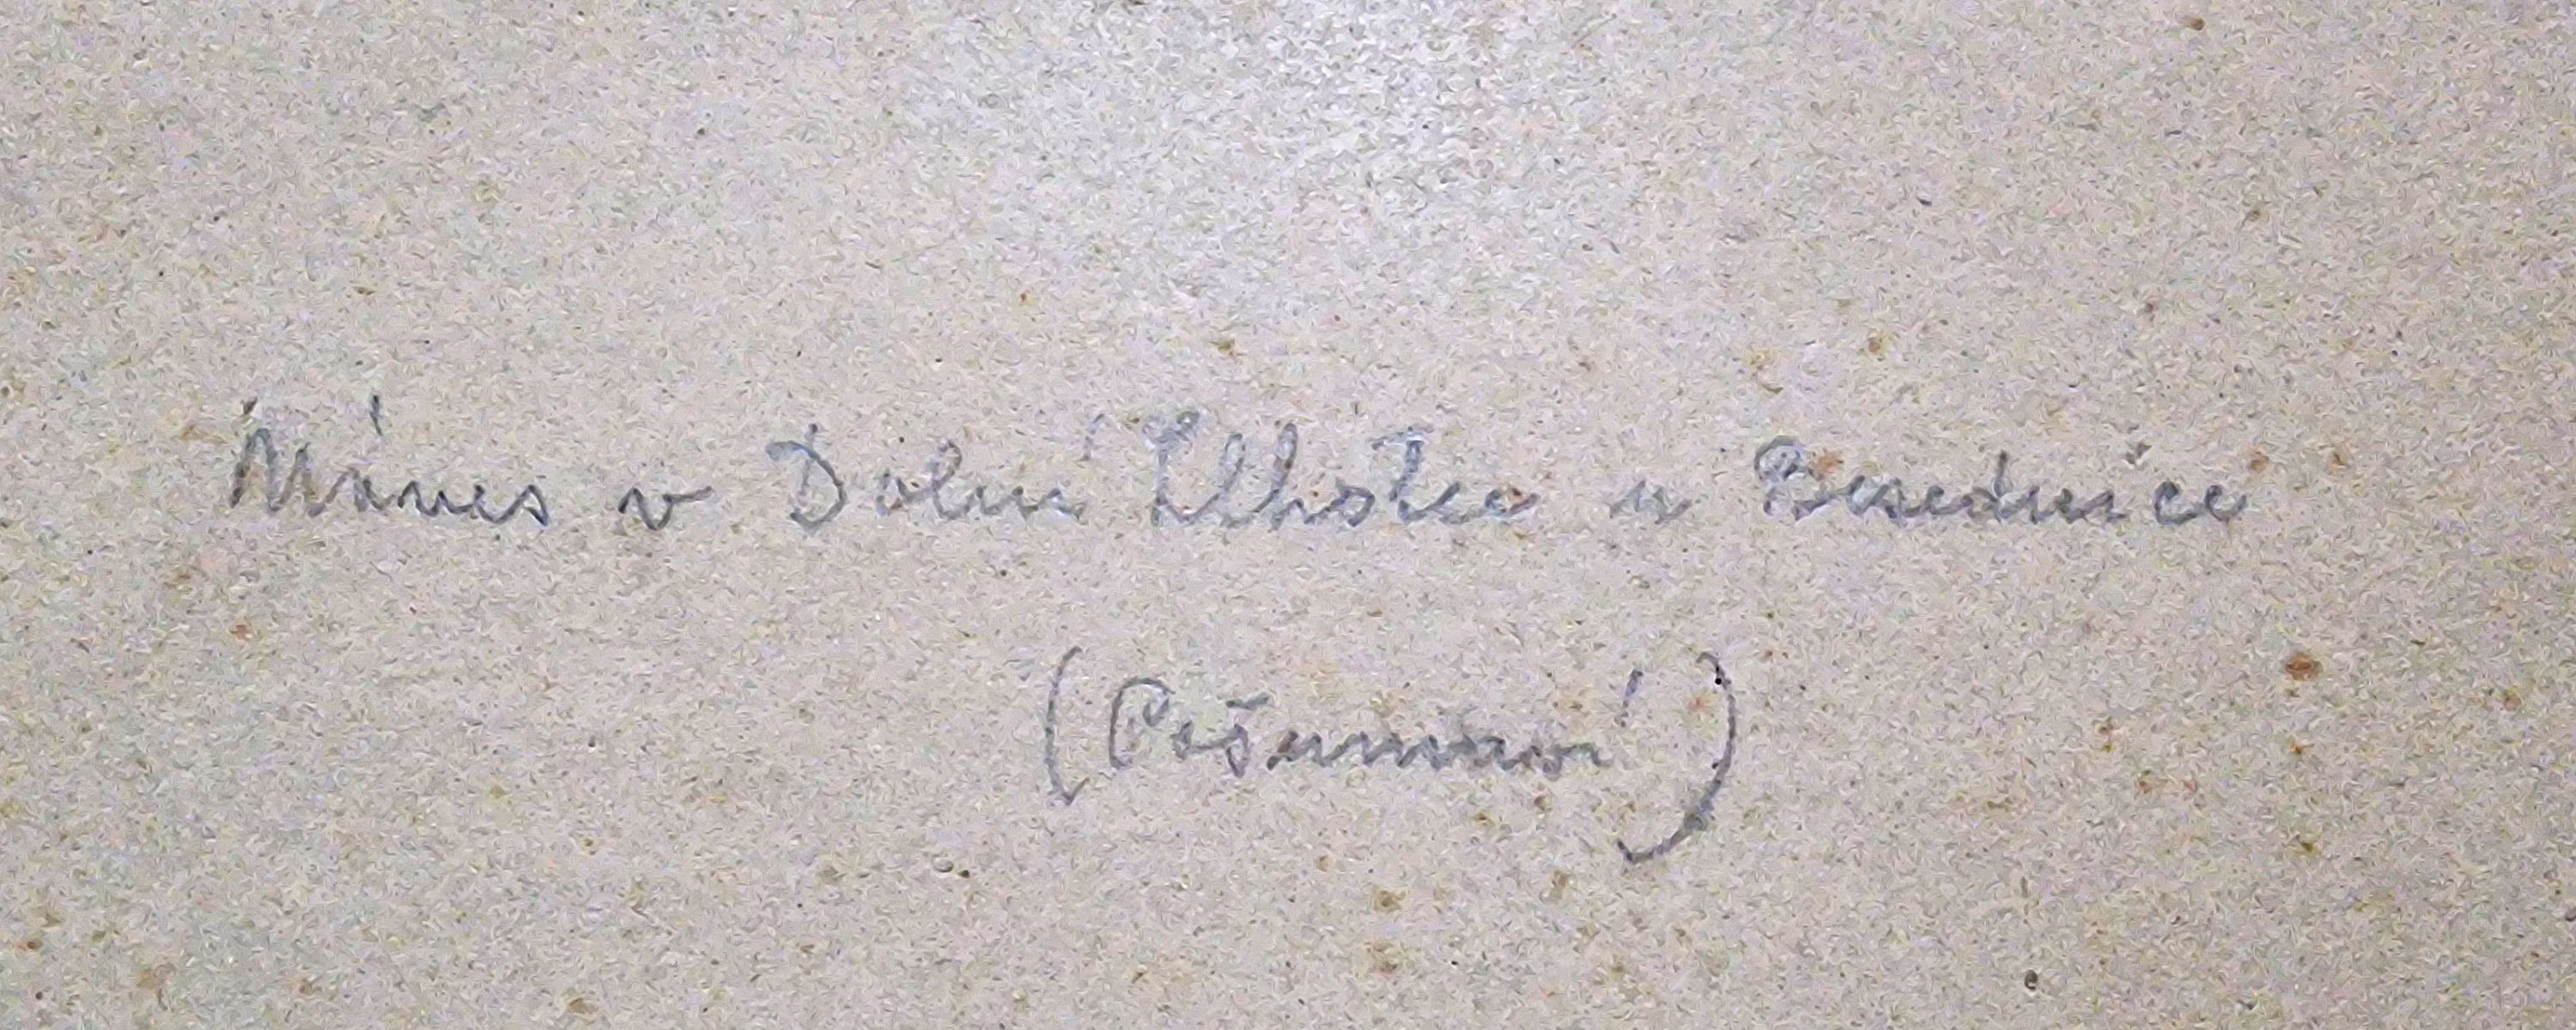 Náves v Dolní Lhotce u Besednice
(Pošumaví)